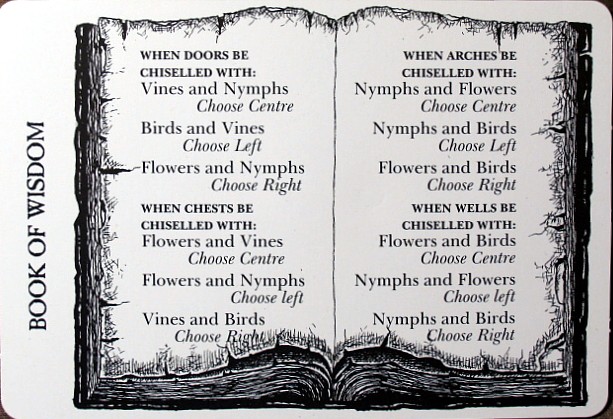 BOOK OF WISDOM
WHEN DOORS BE
CHISELLED WITH:
Vines and Nymphs
Choose Centre
Birds and Vines
Choose Left
Flowers and Nymphs
Choose Right
WHEN CHESTS BE
CHISELLED WITH:
Flowers and Vines
Choose Centre
Flowers and Nymphs
Choose left
Vines and Birds
Choose Right
WHEN ARCHES BE
CHISELLED WITH:
Nymphs and Flowers
Choose Centre
Nymphs and Birds
Choose Left
Flowers and Birds
Choose Right
WHEN WELLS BE
CHISELLED WITH:
Flowers and Birds
Choose Centre
Nymphs and Flowers
Choose left
Nymphs and Birds
Choose Right